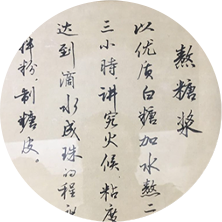 熬糖浆
以优质白糖加水熬二
三小時讲究火候粘度
达到滴水成珠的程
拌粉制糖皮。